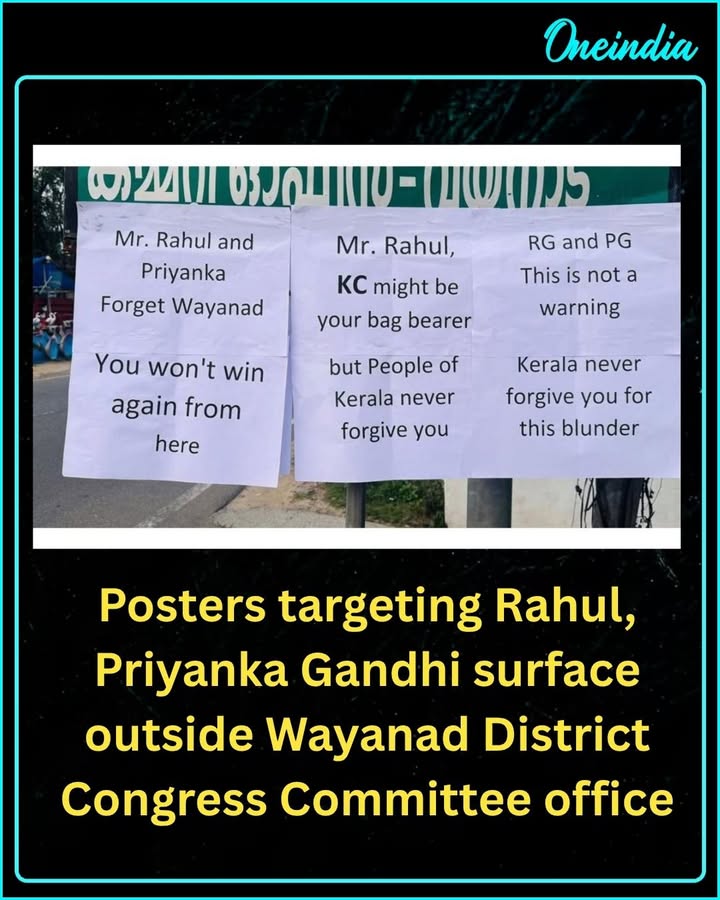 Oneindia
കമ്മറ്റി ഓഫീസ് - വയനാട്
Mr. Rahul and
Priyanka
Forget Wayanad
You won't win
again from
here
Mr. Rahul,
KC might be
your bag bearer
but People of
Kerala never
forgive you
RG and PG
This is not a
warning
Kerala never
forgive you for
this blunder
Posters targeting Rahul,
Priyanka Gandhi surface
outside Wayanad District
Congress Committee office